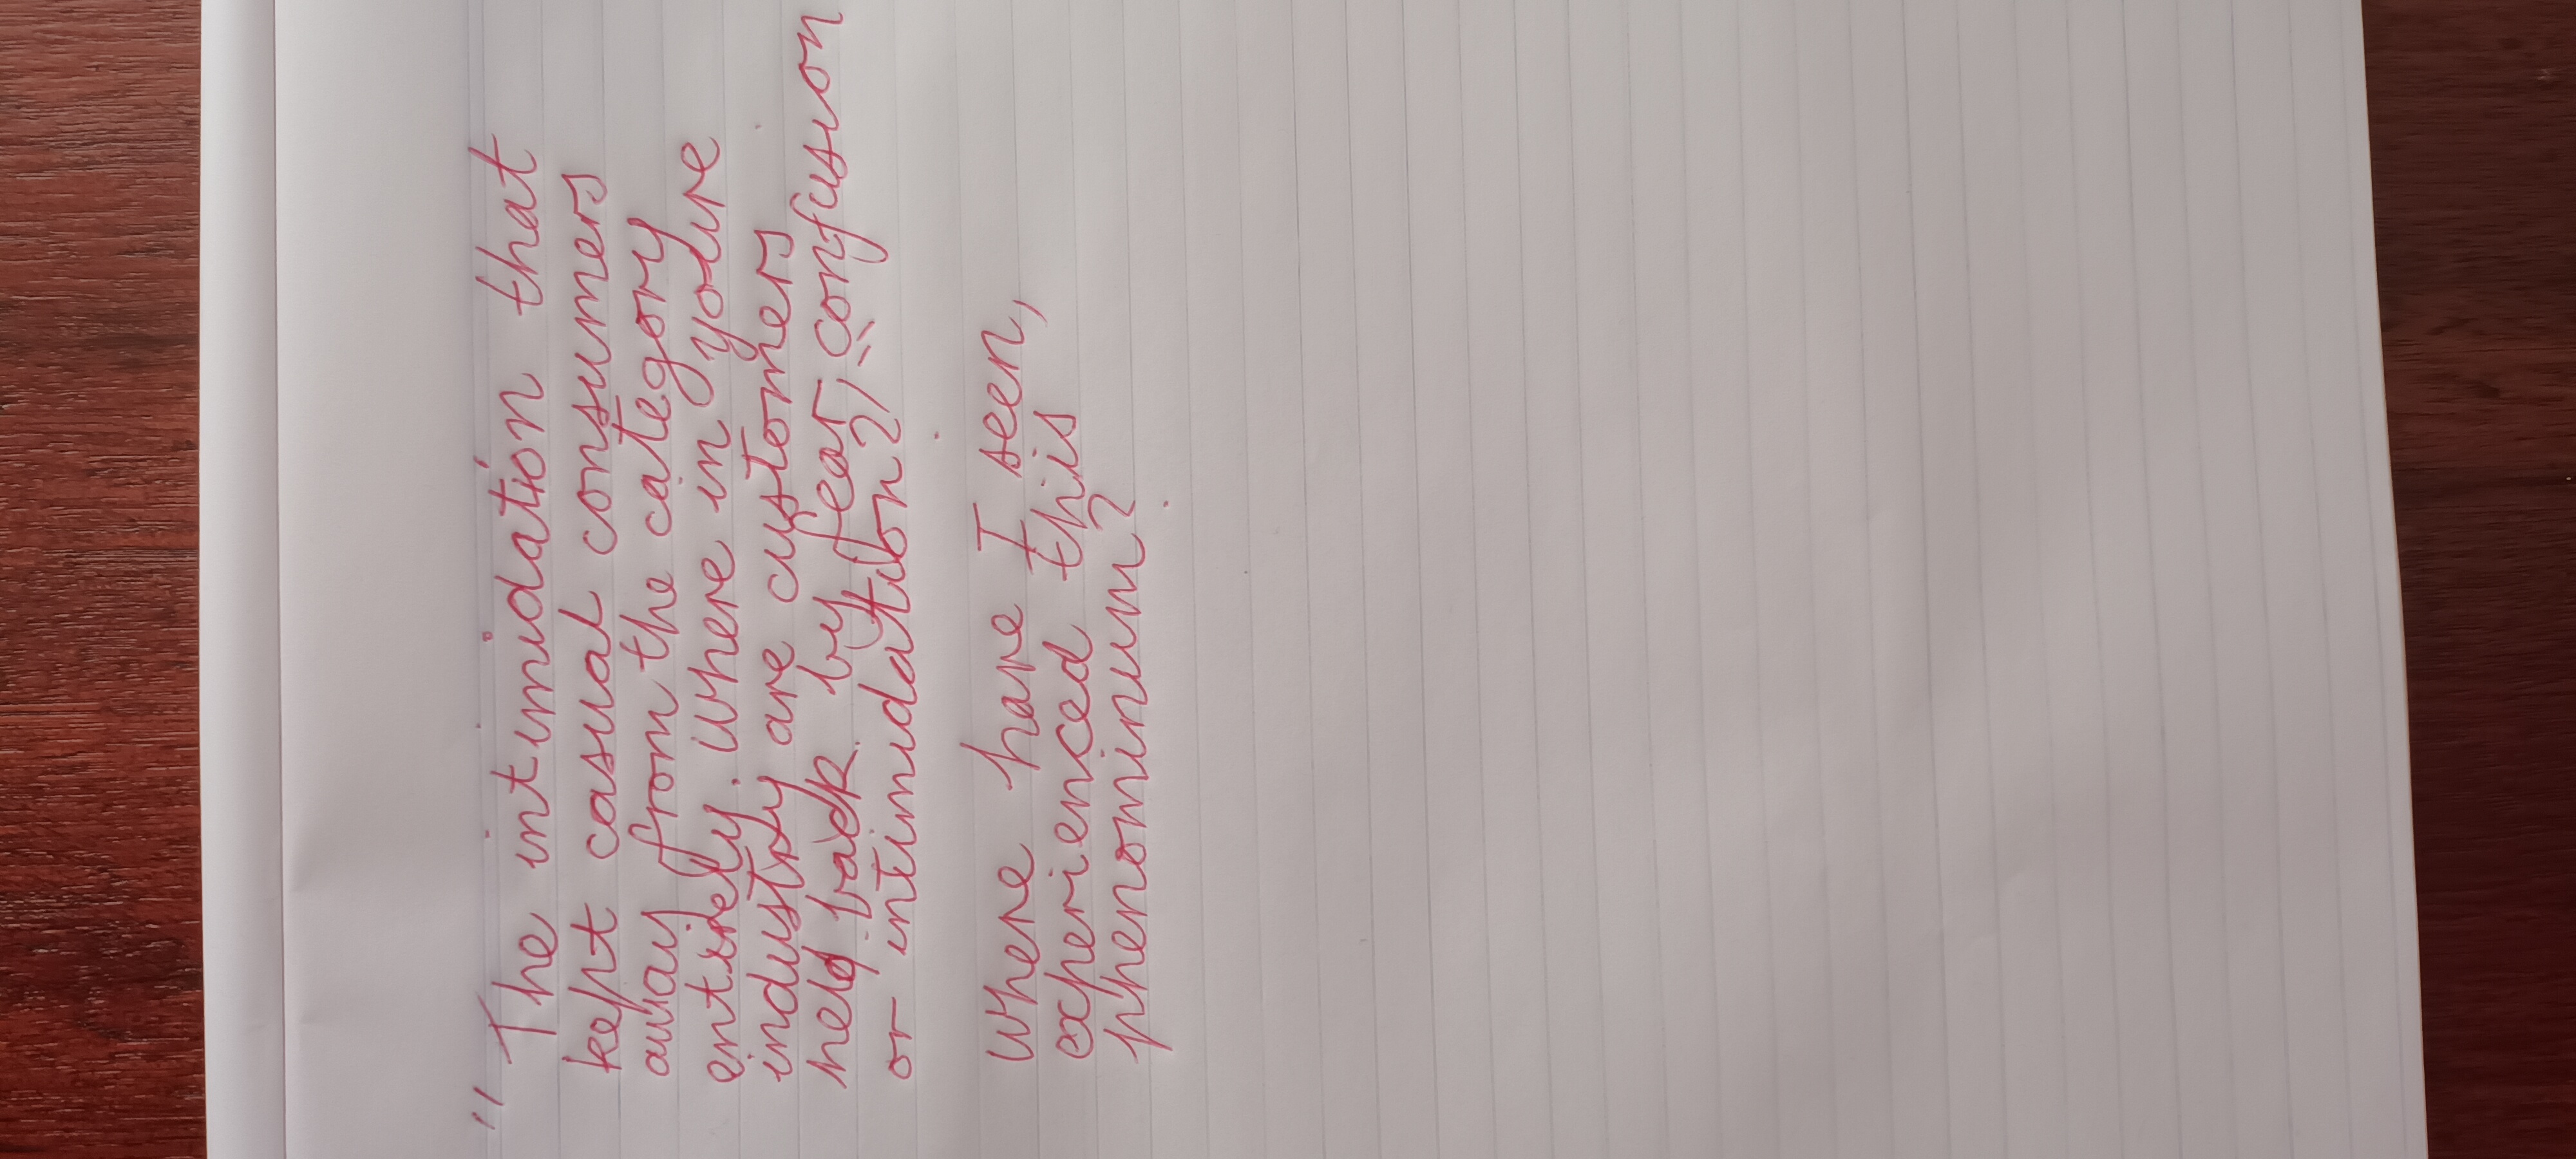 " The intimidation that
kept casual consumers
away from the category
entirely. Where in your
industry are customers
held back by fear, confusion
or intimidation?"
Where have I seen,
experienced this
phenominum?